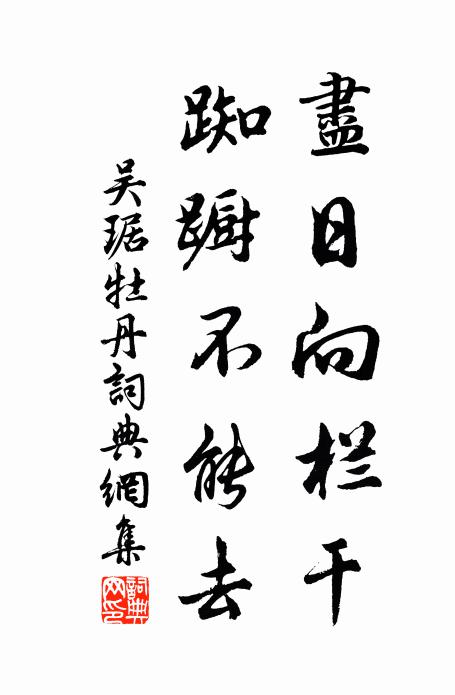 盡日向栏干
踟蹰不能去
吴琚牡丹詞典網集
詞典网印